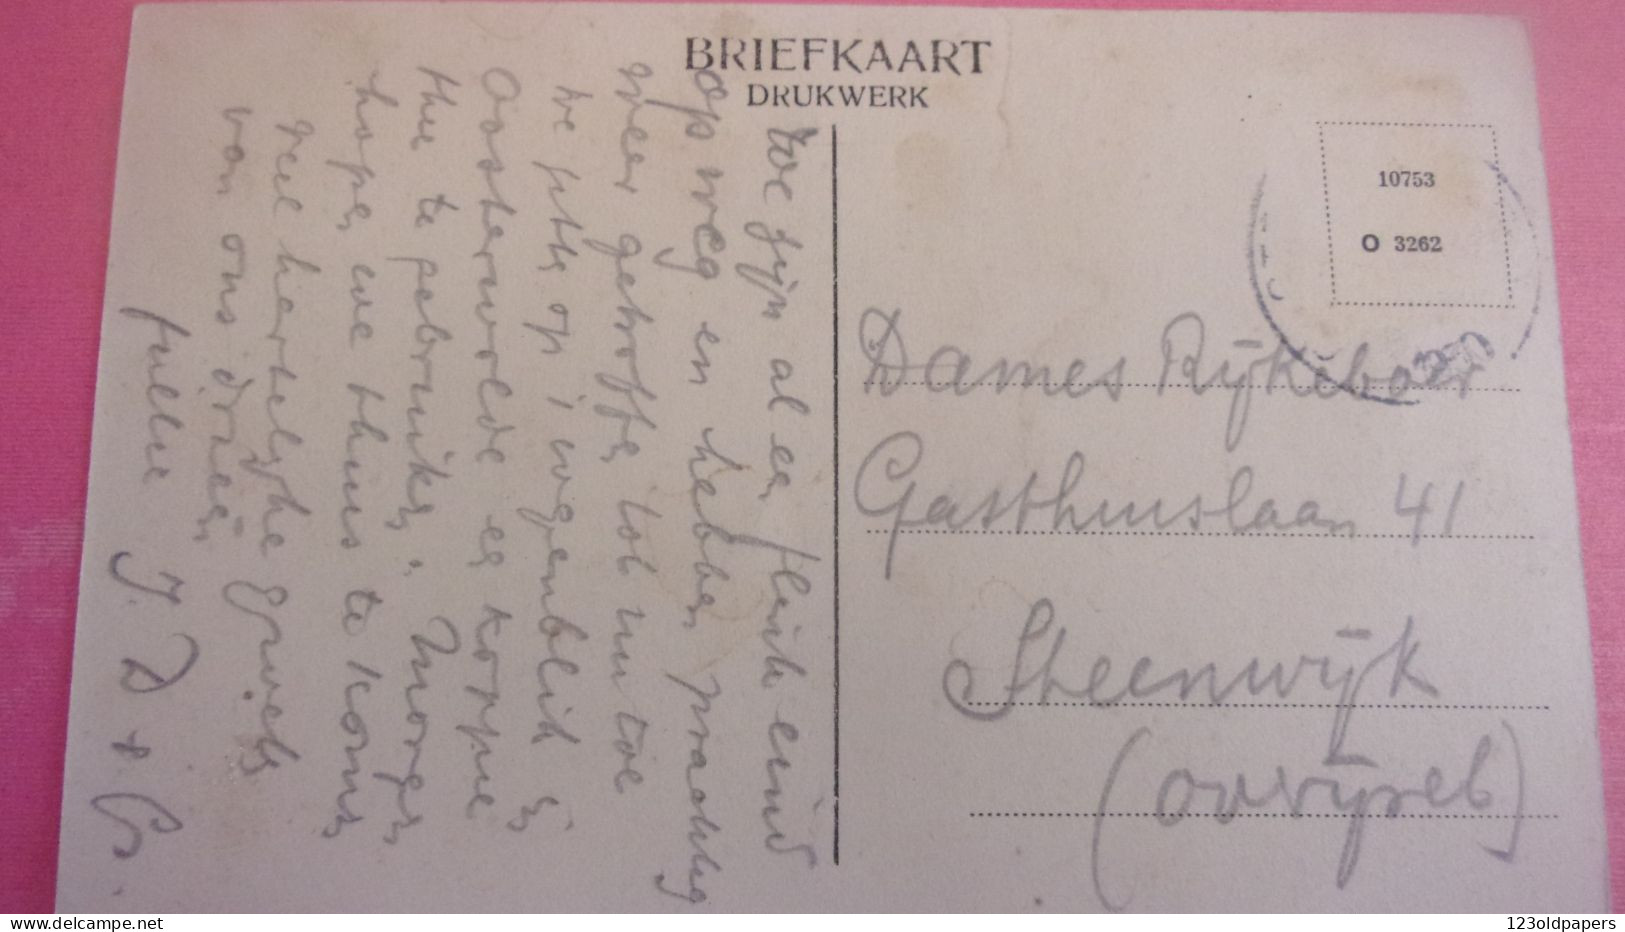 BRIEFKAART
DRUKWERK
We zijn al een flink eind
op weg en hebben prachtig
weer getroffen tot nu toe
we zitten op 't oogenblik in
Oosterwolde een kopje
thee te gebruiken. Morgen
hopen we thuis te komen
veel hartelijke groeten
van ons drieën
jullie J. D + G.
10753
O 3262
Dames Rijkeboer
Gasthuislaan 41
Steenwijk
(Overijsel)
123oldpapers